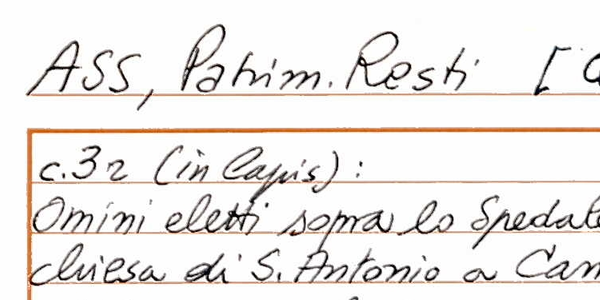 ASS, Patrim. Resti [
c.3r (in lapis):
Omini eletti sopra lo Spedale
chiesa di S. Antonio a Cam